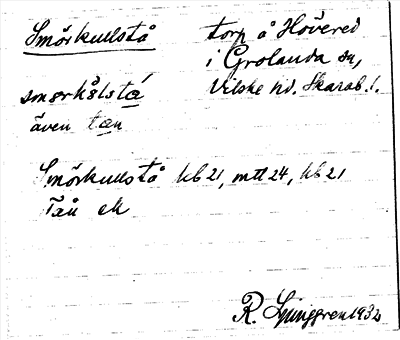 Smörkullstå
torp å Hovered
i Grolanda sn,
Vilske hd. Skarab. l.
smørkålstá
även tan
Smörkullstå kb 21, mtl 24, hb 21
Tån ek
R. Ljunggren 1932